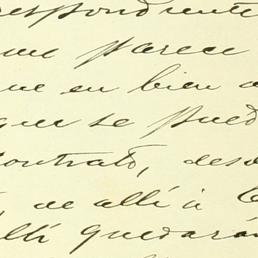 respondiente
me parece
que en bien
que se pued
contrato, desd
de allí á
allí quedará